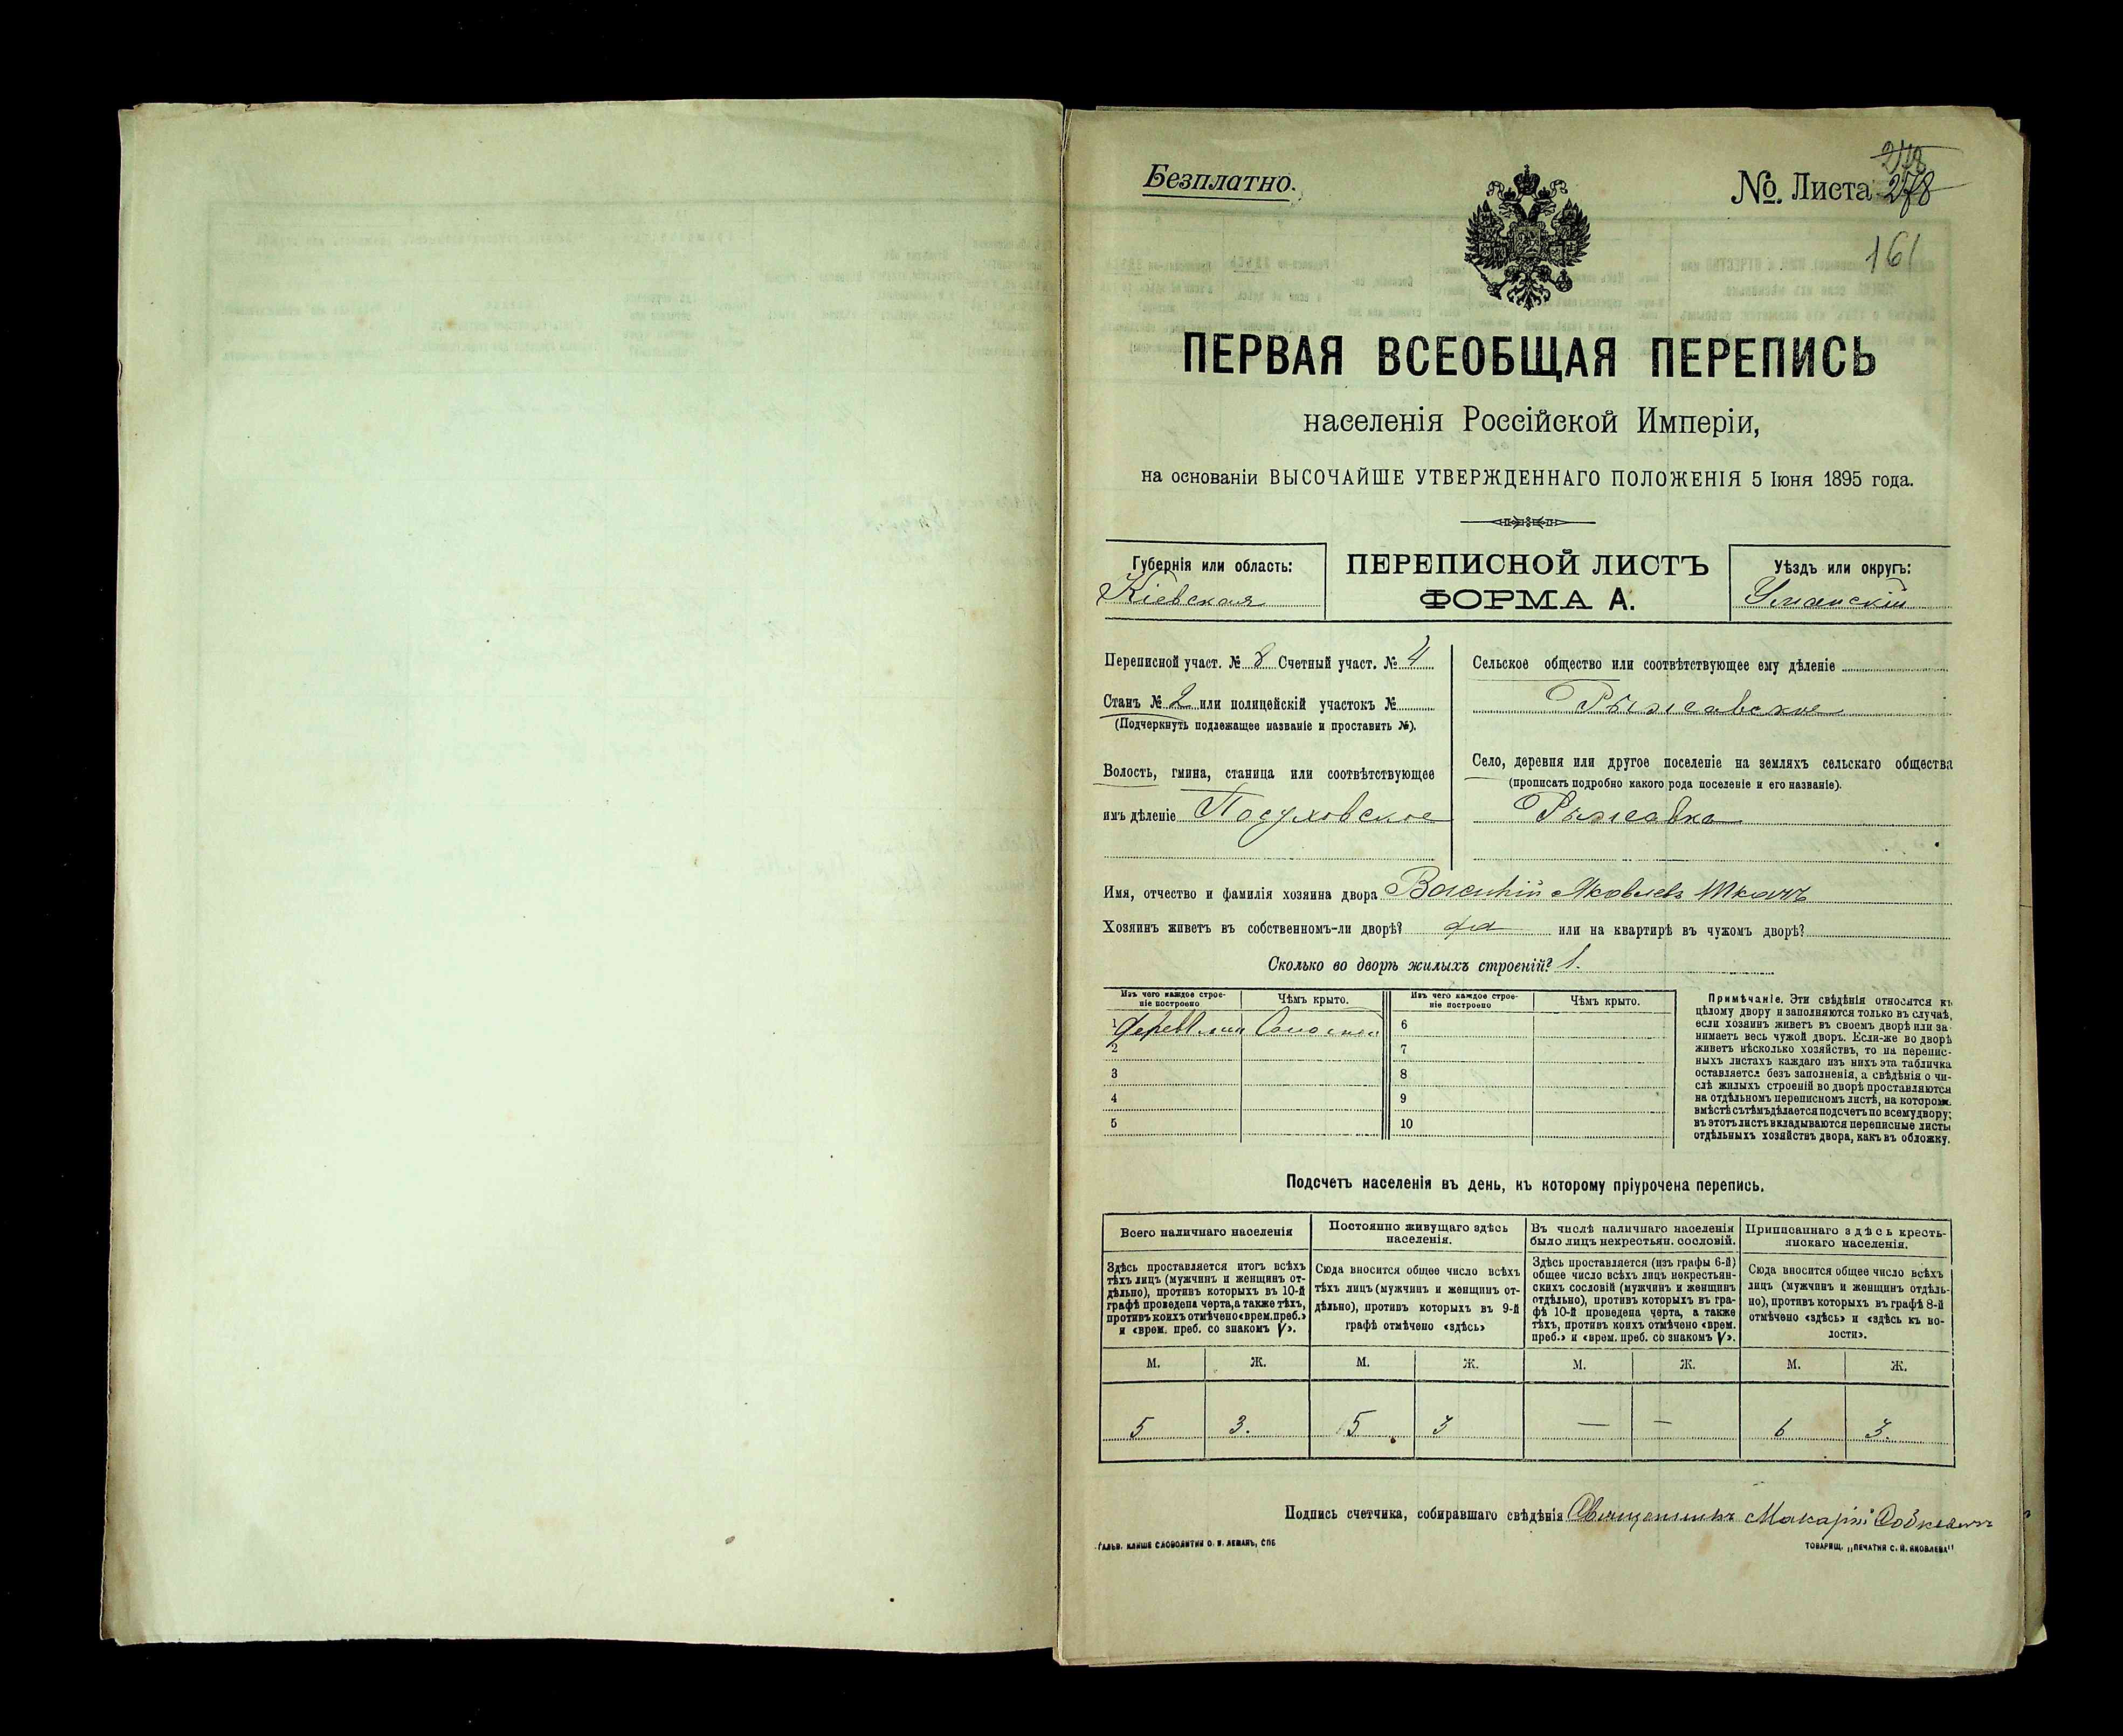 Безплатно.
№. Листа 278
278
161
ПЕРВАЯ ВСЕОБЩАЯ ПЕРЕПИСЬ
населенія Россійской Имперіи,
на основаніи ВЫСОЧАЙШЕ УТВЕРЖДЕННАГО ПОЛОЖЕНІЯ 5 Іюня 1895 года.
Губернія или область:
Кіевская
ПЕРЕПИСНОЙ ЛИСТЪ
ФОРМА А.
Уѣздъ или округъ:
Уманскій
Переписной участ. № 8 Счетный участ. № 4
Станъ № 2 или полицейскій участокъ №
(Подчеркнуть подлежащее названіе и проставить №).
Волость, гмина, станица или соотвѣтствующее
имъ дѣленіе Посуховское
Сельское общество или соотвѣтствующее ему дѣленіе
Рыжавское
Село, деревня или другое поселеніе на земляхъ сельскаго общества
(прописать подробно какого рода поселеніе и его названіе).
Рыжавка
Имя, отчество и фамилія хозяина двора Василій Яковлевъ Ткачъ
Хозяинъ живетъ въ собственномъ-ли дворѣ? да или на квартирѣ въ чужомъ дворѣ?
Сколько во дворѣ жилыхъ строеній? 1.
Изъ чего каждое строе-
ніе построено
Чѣмъ крыто.
Изъ чего каждое строе-
ніе построено
Чѣмъ крыто.
1
2
3
4
5
6
7
8
9
10
Примѣчаніе. Эти свѣдѣнія относятся къ
цѣлому двору и заполняются только въ случаѣ,
если хозяинъ живетъ въ своемъ дворѣ или за-
нимаетъ весь чужой дворъ. Если-же во дворѣ
живетъ нѣсколько хозяйствъ, то на перепис-
ныхъ листахъ каждаго изъ нихъ эта табличка
оставляется безъ заполненія, а свѣдѣнія о чи-
слѣ жилыхъ строеній во дворѣ проставляются
на отдѣльномъ переписномъ листѣ, на которомъ
вмѣстѣ съ тѣмъ дѣлается подсчетъ по всему двору;
въ этотъ листъ вкладываются переписные листы
отдѣльныхъ хозяйствъ двора, какъ въ обложку.
Подсчетъ населенія въ день, къ которому пріурочена перепись.
Всего наличнаго населенія
Здѣсь проставляется итогъ всѣхъ
тѣхъ лицъ (мужчинъ и женщинъ от-
дѣльно), противъ которыхъ въ 10-й
графѣ проведена черта, а также тѣхъ,
противъ коихъ отмѣчено «врем. преб.»
и «врем. преб. со знакомъ V».
Постоянно живущаго здѣсь
населенія.
Сюда вносится общее число всѣхъ
тѣхъ лицъ (мужчинъ и женщинъ от-
дѣльно), противъ которыхъ въ 9-й
графѣ отмѣчено «здѣсь»
Въ числѣ наличнаго населенія
было лицъ некрестьян. сословій.
Здѣсь проставляется (изъ графы 6-й)
общее число всѣхъ лицъ некрестьян-
скихъ сословій (мужчинъ и женщинъ
отдѣльно), противъ которыхъ въ гра-
фѣ 10-й проведена черта, а также
тѣхъ, противъ коихъ отмѣчено «врем.
преб.» и «врем. преб. со знакомъ V».
Приписаннаго здѣсь кресть-
янскаго населенія.
Сюда вносится общее число всѣхъ
лицъ (мужчинъ и женщинъ отдѣль-
но), противъ которыхъ въ графѣ 8-й
отмѣчено «здѣсь» и «здѣсь къ во-
лости».
М. Ж. М. Ж. М. Ж. М. Ж.
5 3. 5 3 — — 6 3.
Подпись счетчика, собиравшаго свѣдѣнія Священникъ Макарій
ГАЛЬВ. КЛИШЕ СЛОВОЛИТНИ О. И. ЛЕМАНЪ, СПБ
ТОВАРИЩ. „ПЕЧАТНЯ С. П. ЯКОВЛЕВА"